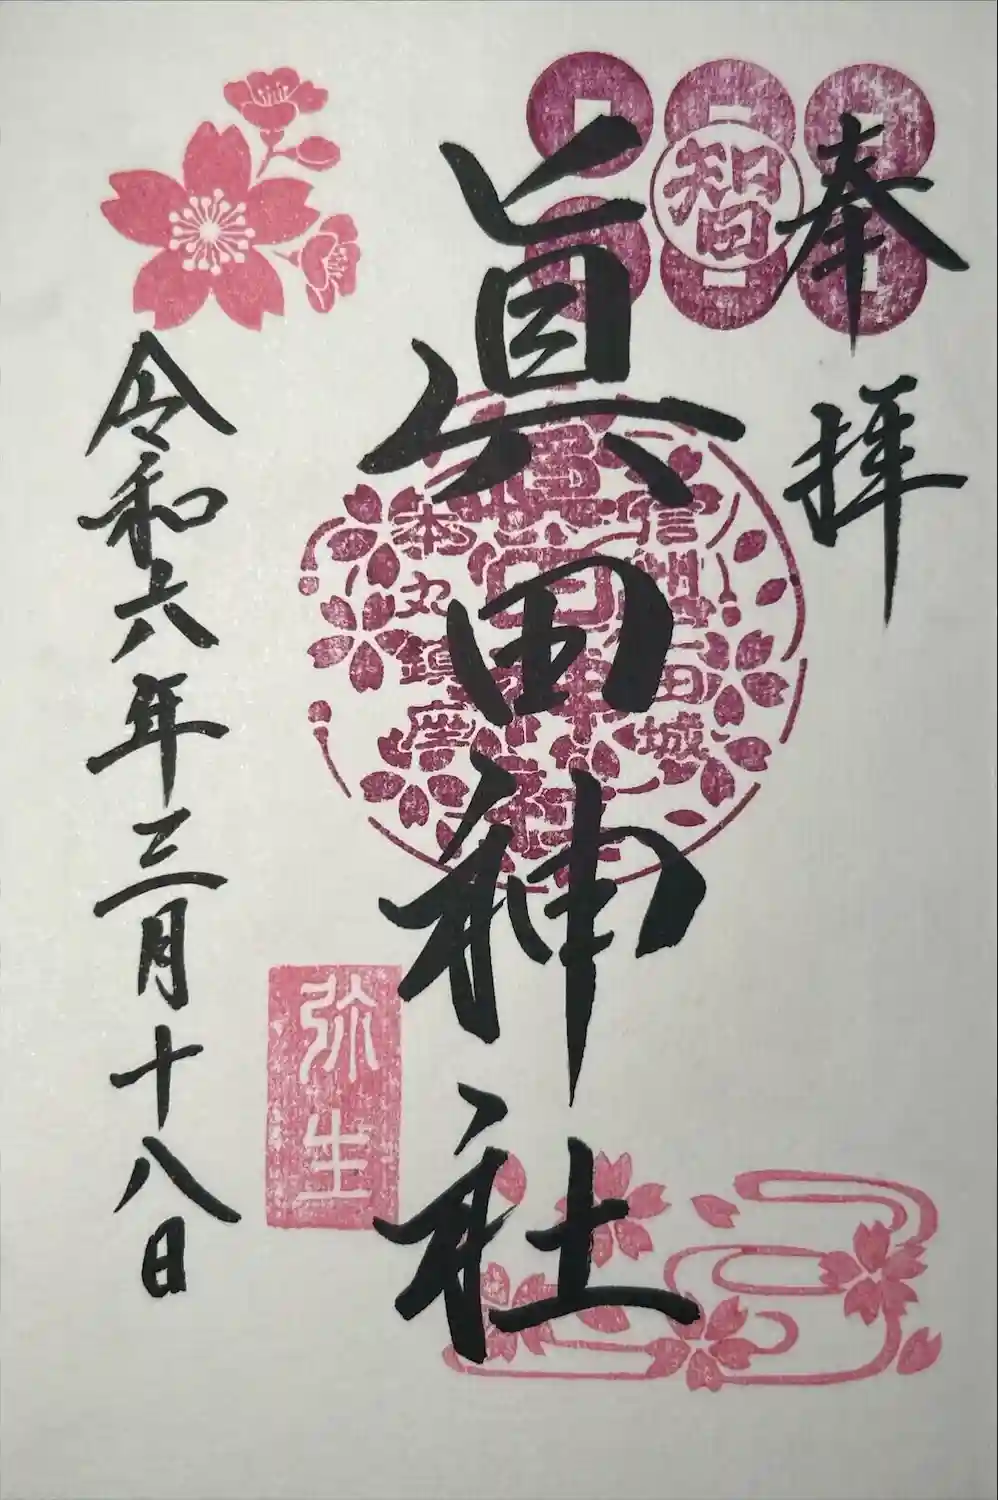 奉拝
智
眞田神社
信州上田城
眞田神社
本丸鎮座
弥生
令和六年三月十八日